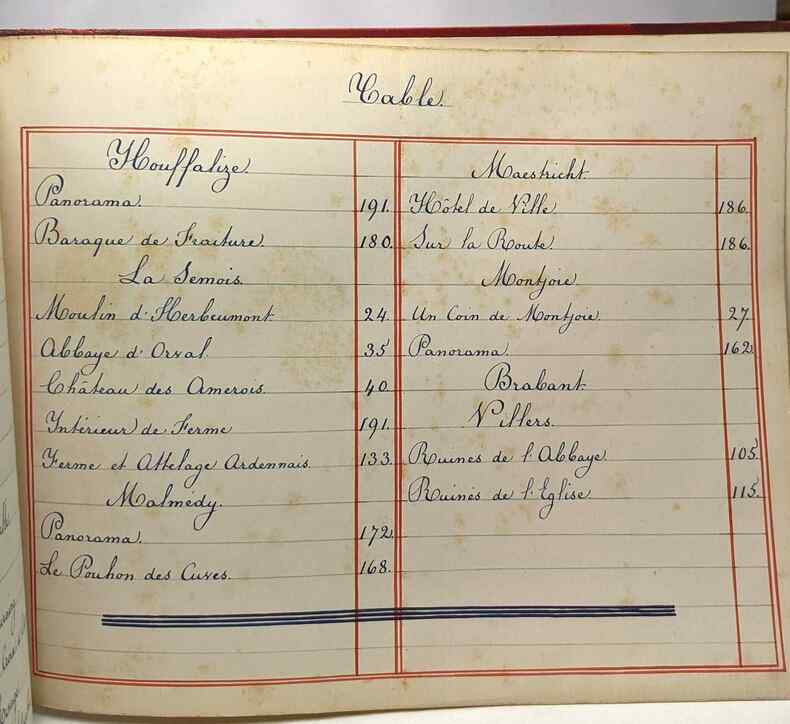 Table.
Houffalize.
Panorama. 191.
Baraque de Fraiture. 180.
La Semois.
Moulin d'Herbeumont 24.
Abbaye d'Orval. 35
Château des Amerois. 40.
Intérieur de Ferme 191.
Ferme et Attelage Ardennais. 133.
Malmédy.
Panorama. 172.
Le Pouhon des Cuves. 168.
Maestricht.
Hôtel de Ville. 186.
Sur la Route. 186.
Montjoie.
Un Coin de Montjoie. 27.
Panorama. 162.
Brabant
Villers.
Ruines de l'Abbaye. 105.
Ruines de l'Eglise 115.